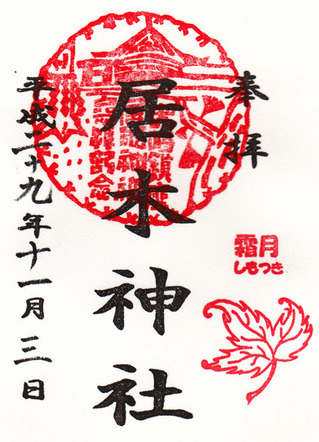 奉拝
居木神社
霜月
しもつき
平成二十九年十一月三日